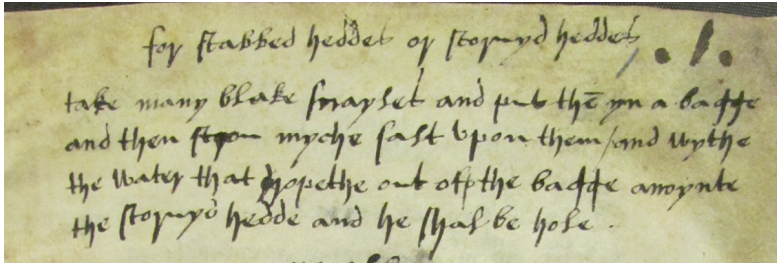 for scabbed heddes or scorvyd heddes .1.
take many blake snayles and put thē yn a bagge
and then strou myche salt upon them / and wythe
the water that dropethe out of the bagge anoynte
the scorvyd hedde and he shal be hole .